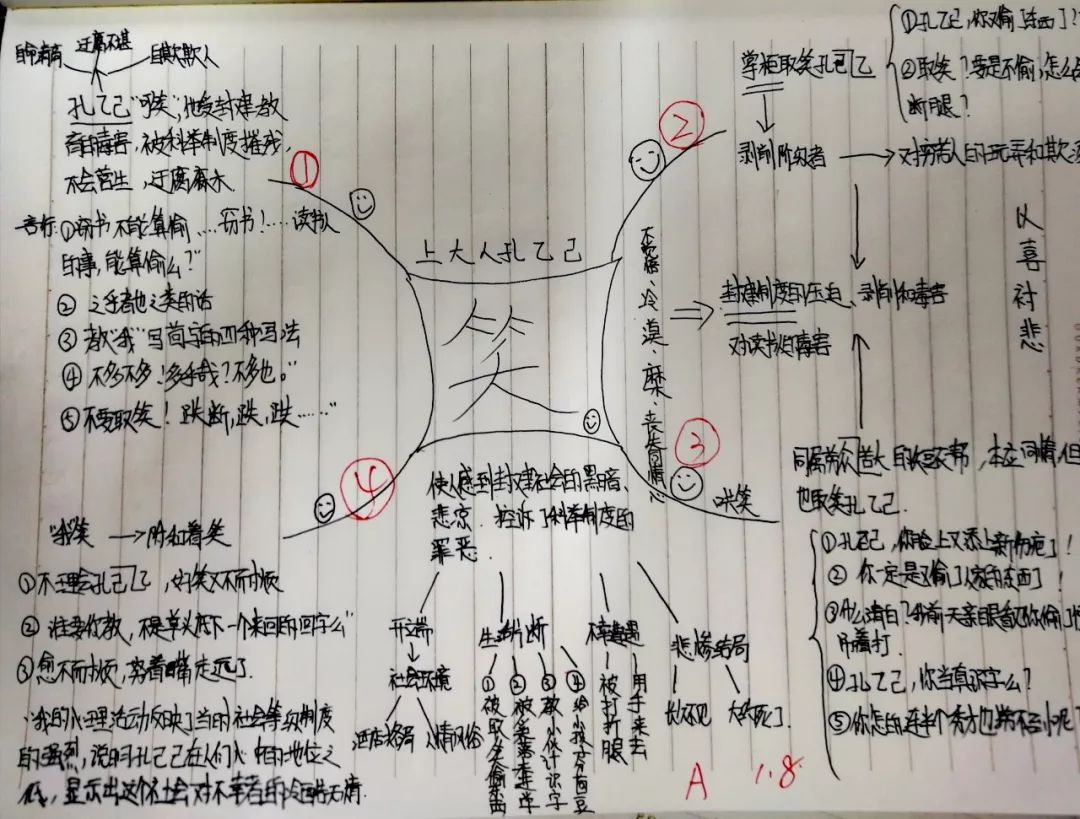 自命清高
迂腐不堪
自欺欺人
孔乙己"可笑",他受封建教
育的毒害,被科举制度摧残,
不会营生,迂腐麻木
①
言行:①窃书不能算偷…窃书!…读书人
的事,能算偷么?"
② 之乎者也之类的话
③ 教"我"写茴字的四种写法
④ 不多不多!多乎哉?不多也。"
⑤不要取笑!跌断,跌,跌……"
上大人孔乙己
笑
②
掌柜取笑孔乙己
①孔乙己,你又偷了东西了?
②取笑?要是不偷,怎么会
断腿?
剥削阶级者
对穷苦人的玩弄和欺
冷漠、
封建制度的压迫、剥削和毒害
对读书人毒害
以喜衬悲
③
哄笑
同属劳苦大
本应同情,但
也取笑孔乙己.
①孔乙己,你脸上又添上新伤疤了!
② 你一定是又偷了人家的东西了!
③什么清白?我前天亲眼看见你偷了
吊着打.
④孔乙己,你当真识字么?
⑤你怎的连半个秀才也捞不到呢?
④
"我"笑 附和着笑
①不理会孔乙己,好笑又不耐烦
②谁要你教,不是草头底下一个来回的回字么"
③愈不耐烦,努着嘴走远了.
"我的心理活动反映了当时社会等级制度
的强烈,说明孔乙己在人们心中的地位之
低,显示出这个社会对不幸者的冷酷无情.
使人感到封建社会的黑暗、
悲凉. 控诉了科举制度的
罪恶.
开端
社会环境
酒店格局
人情风俗
生活片断
①被取笑偷东西
②被笑没进学
③教小伙计识字
④给小孩分茴豆
不幸遭遇
被打折腿
用手来去
悲惨结局
长久不见
大约死了.
A
1.8